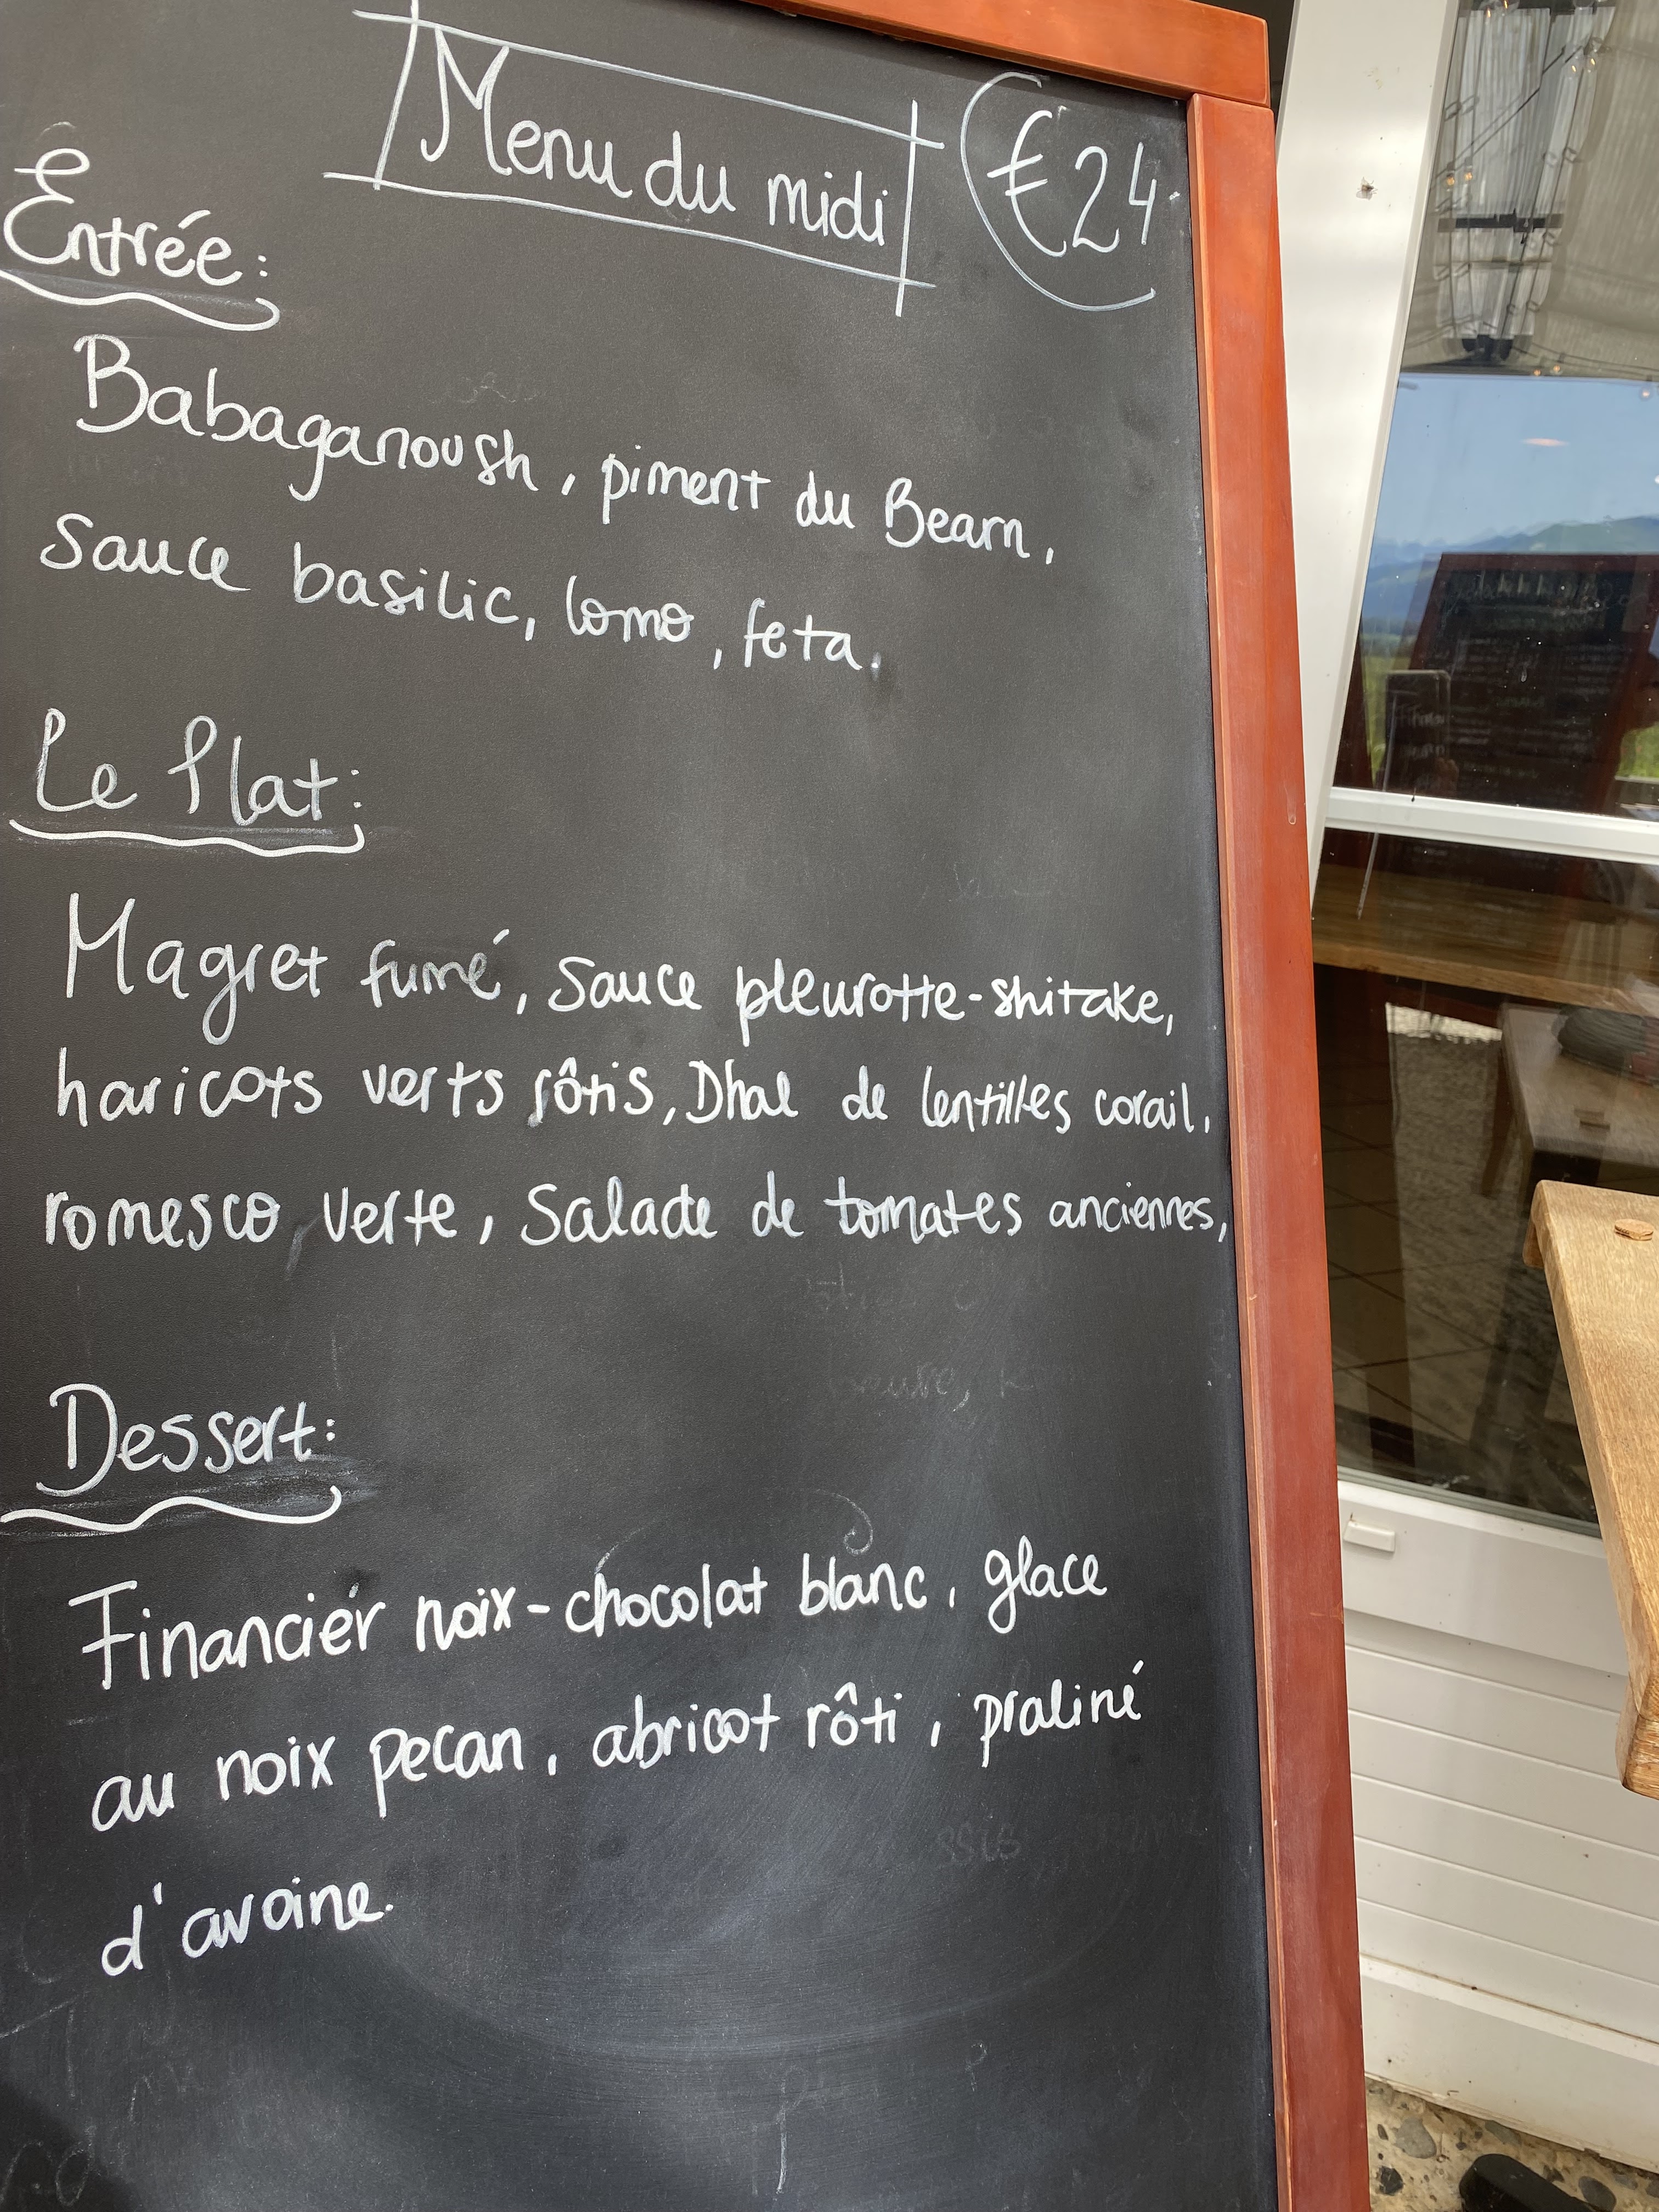 Menu du midi €24
Entrée:
Babaganoush, piment du Bearn,
Sauce basilic, lomo, feta.
Le Plat:
Magret fumé, Sauce pleurotte-shitake,
haricots verts rôtis, Dhal de lentilles corail,
romesco verte, Salade de tomates anciennes,
Dessert:
Financier noix-chocolat blanc, glace
au noix pecan, abricot rôti, praliné
d'avoine.